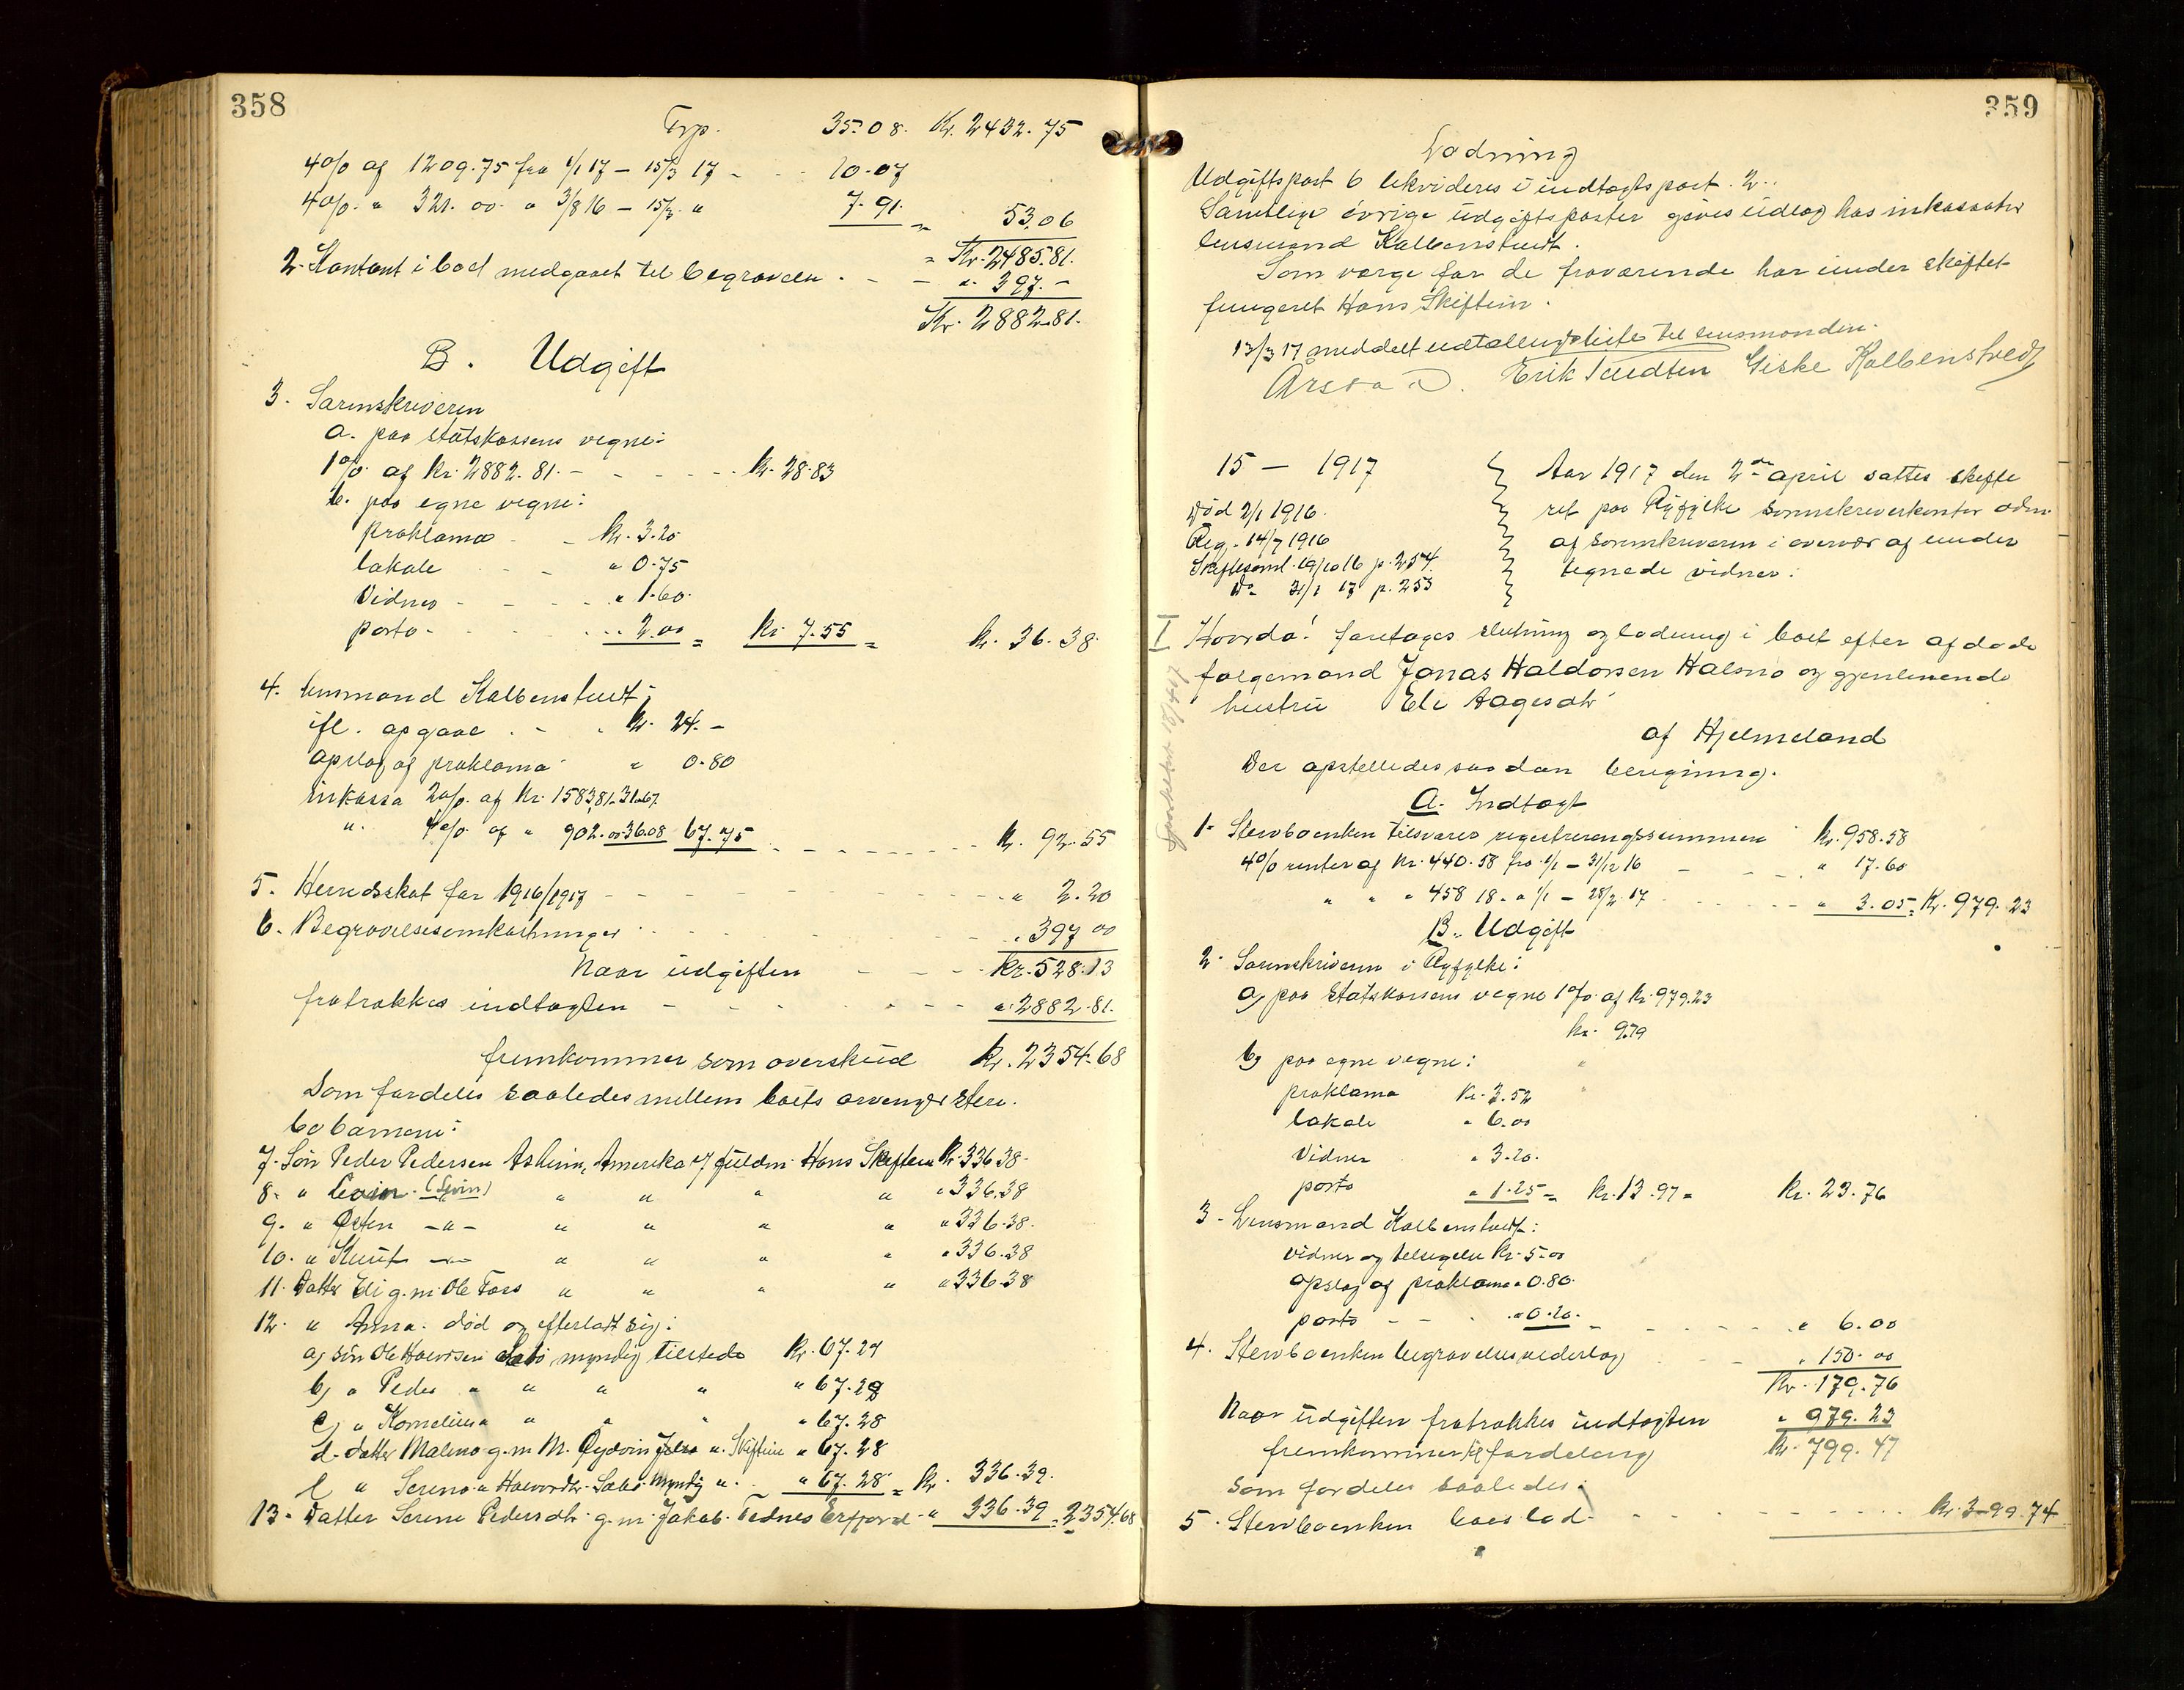 358
Trp. 35.08. Kr. 2432.75
4% af 1209.75 fra 1/1 17 – 15/3 17 - - - 10.07
4%. " 321.00. " 3/8 16 – 15/3 " 7.91. = 53.06
= Kr. 2485.81.
2. Kontant i boet medgaaet til begravelse - - - ". 397.-
Kr. 2882.81.
B. Udgift
3. Sorenskriveren
a. paa statskassens vegne:
1% af Kr. 2882.81. - - - - - Kr. 28.83
b. paa egne vegne:
proklama - - Kr. 3.20
lokale - - " 0.75
Vidner - - - - " 1.60.
porto - - - - - 2.00 = Kr. 7.55 = kr. 36.38.
4. lensmand Kolbenstvedt;
ifl. opgave - - - Kr. 24.-
opslag af proklama " 0.80
inkasso 2% af Kr. 1583,81 = 31.67
". 4% af " 902.00 = 36.08 67.75 - - - - - kr. 92.55
5. Herredsskat for 1916/1917 - - - - - - " 2.20
6. Begravelsesomkostninger - - - - - - " 397 00
Naar udgiften - - - Kr. 528.13
fratrækkes indtægten - - - - - - " 2882.81.
fremkommer som overskud Kr. 2354.68
Som fordeles saaledes mellem boets arvinger
bobarnene:
7. Søn Peder Pedersen Amerika v/ fuldm. Hans Skiftun Kr. 336.38-
8. " " " " " " 336.38
9. " Østen -"- " " " " " 336.38.
10. " Knut -"- " " " " " 336.38
11. Datter Eli g.m. Ole Foss " " " " " 336.38
12. " Anna. død og efterladt sig:
a) søn Ole Halvorsen Sabø myndig tilstede Kr. 67.27
b) " Peder " " " " " 67.28
c) " Kornelius " " " " 67.28
d. datter Malene g.m. M. Øydvin Jelsa v. Skiftun " 67.28
e " Serena " Halvorsdtr. Sabø. Myndig ". " 67.28 = Kr. 336.39.
13. Datter Serene Pedersdtr. g.m. Jakob Tednes Erfjord - " 336.39 = 2354.68
359
Lodning
Udgiftspost 6 likvideres i indtægtspost. 2..
Samtlige øvrige udgiftsposter gives udlæg hos inkassator
lensmand Kolbenstvedt.
Som værge for de fraværende har under skiftet
fungeret Hans Skiftun.
13/3 17 meddelt udtællingsliste til lensmanden.
Årstad. Erik Tuedten Giske Kolbenstvedt
15 – 1917
Død 2/1 1916.
Reg. 14/7 1916
Skiftesaml. 19/10 16 p. 254.
Do 31/1 17 p. 253
Aar 1917 den 2den april sattes skifte
ret paa Ryfylke sorenskriverkontor adm.
af sorenskriveren i overvær af under
tegnede vidner:
I Hvorda! foretoges slutning og lodning i boet efter afdøde
følgemand Jonas Haldorsen Halsnø og gjenlevende
hustru Eli Aagesdtr
af Hjelmeland
Der opstilledes saadan beregning.
A. Indtægt
1. Stervboenken tilsvarer registreringssummen Kr. 958.58
4% renter af Kr. 440.58 fra 1/1 – 31/12 16 - - - " 17.60
" " " 458 18. " 1/1 – 28/2. 17 - - - - " 3.05 = Kr. 979.23
B. Udgift
2. Sorenskriveren i Ryfylke:
a) paa statskassens vegne 1% af Kr. 979.23
kr. 9.79
b) paa egne vegne:
proklama Kr. 3.52
lokale " 6.00
Vidner " 3.20.
porto " 1.25 = Kr. 13.97 = Kr. 23.76
3. Lensmand Kolbenstvedt:
vidner og tilsigelse Kr. 5.00
opslag af proklama " 0.80.
porto - - " 0.20. - - - - - " 6.00
4. Stervboenken begravelsesvederlag - - " 150.00
Kr. 179.76
Naar udgiften fratrækkes indtægten " 979.23
fremkommer til fordeling Kr. 799.47
som fordeles saaledes:
5. Stervboenken boeslod - - - - - - - - kr. 399.74